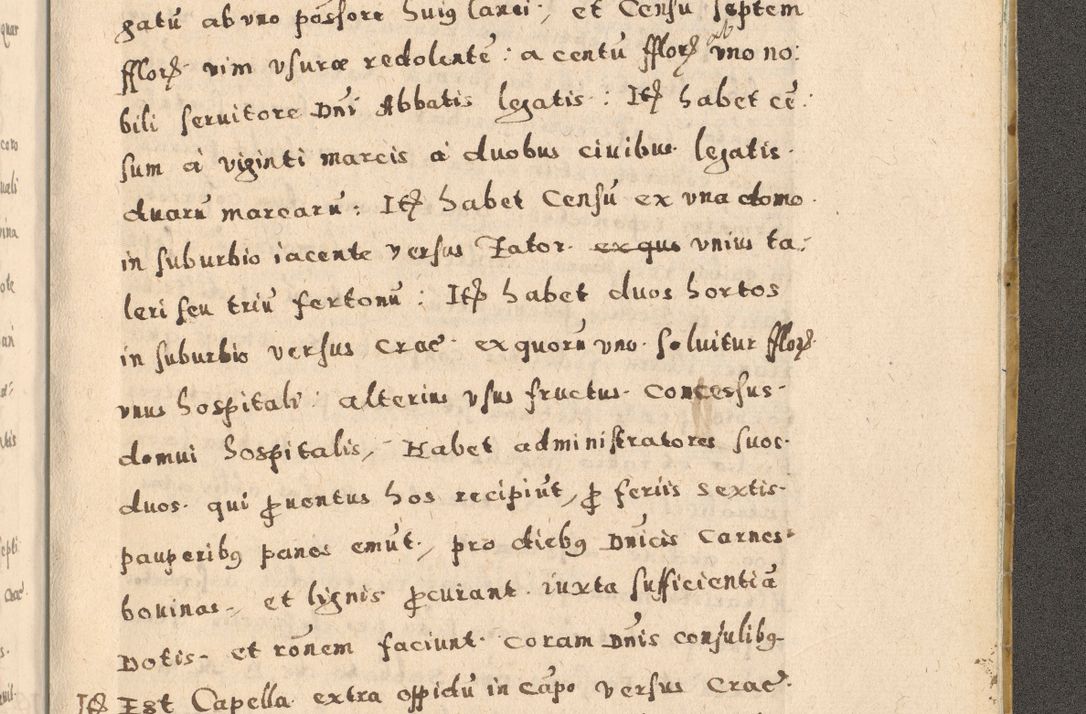 gatū ab vno possore huiꝯ lanei, et Censu septem
fflorꝝ vim vsuræ redolentē: a centū fflorꝝ ab vno no:
bili seruitore Dnī Abbatis legatis: Itꝫ habet cē:
sum à viginti marcis à duobus ciuibus legatis
duarū marcarū: Itꝫ habet Censū ex vna domo
in suburbio iacente versus Zator ex quo vnius ta:
leri seu triū fertonū: Itꝫ habet duos hortos
in suburbio versus Crac. ex quorū vno soluitur fflorꝝ
vnus hospitali: alterius vsus fructus concessus
domui hospitalis, Habet administratores suos
duos qui ꝓuentus hos recipiūt, ꝓ feriis sextis
pauperibꝯ panes emūt, pro diebꝯ Dnīcis Carnes
bouinas, et lignis ꝓcurant iuxta sufficientiā
Dotis, et rōnem faciunt coram Dnīs consulibꝯ
Itꝫ Est Capella extra oppidū in cāpo versus Crac.